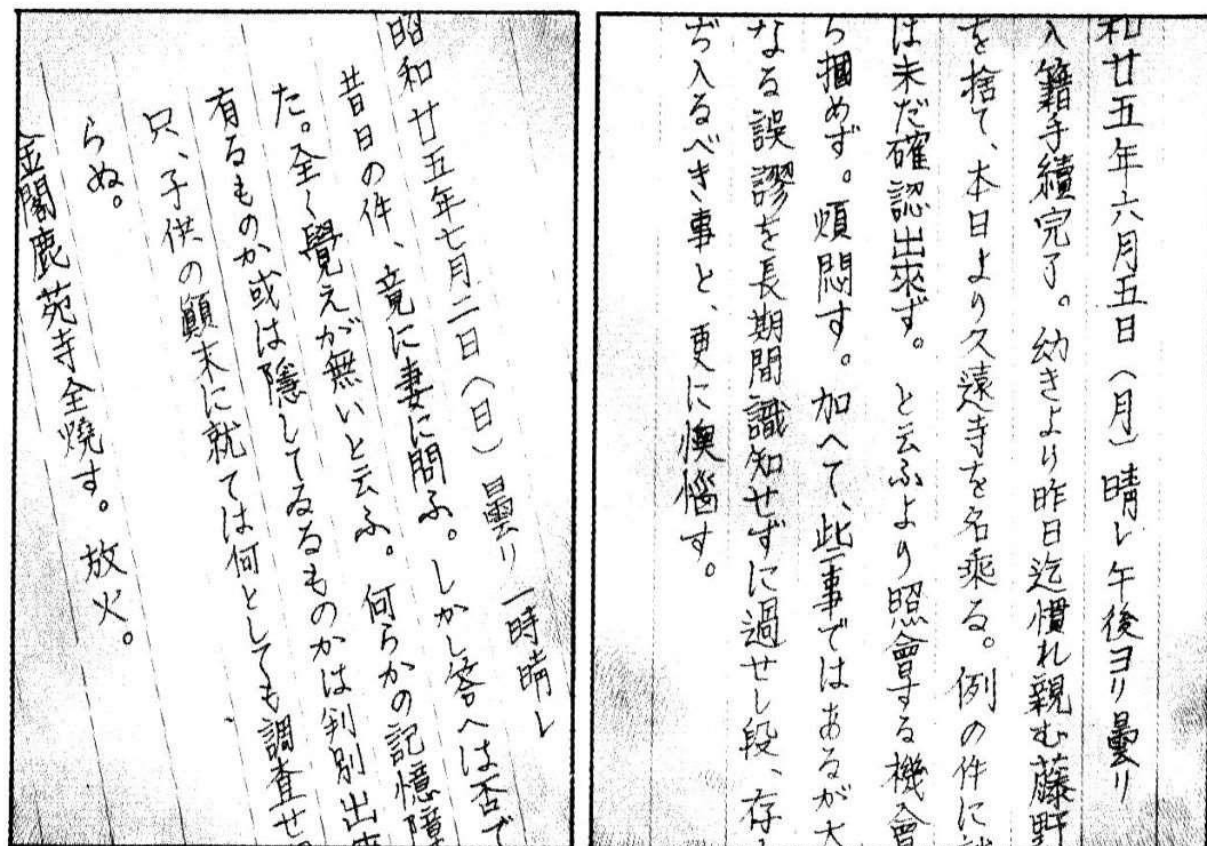 和廿五年六月五日(月)晴レ午後ヨリ曇リ
入籍手續完了。幼きより昨日迄慣れ親む藤野
を捨て、本日より久遠寺を名乘る。例の件に
は未だ確認出來ず。 と云ふより照會する機會
ら摑めず。煩悶す。加へて、些事ではあるが大
なる誤謬を長期間識知せずに過せし段、存
ぢ入るべき事と、更に懊惱す。
昭和廿五年七月二日(日)曇リ 一時晴レ
昔日の件、竟に妻に問ふ。しかし答へは否で
た。全く覺えが無いと云ふ。何らかの記憶障
有るものか或は隱してゐるものかは判別出來
只、子供の顚末に就ては何としても調査せ
らぬ。
金閣鹿苑寺全燒す。放火。